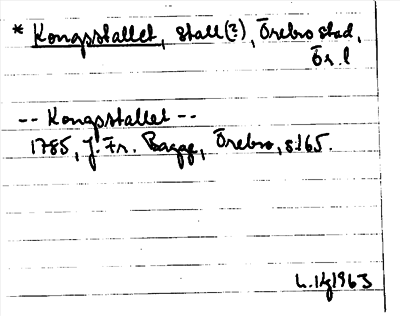 * Kongsstallet, stall(?), Örebro stad,
Ör. l
-- Kongsstallet --
1785, J. Fr. Bagge, Örebro, s. 165.
1963